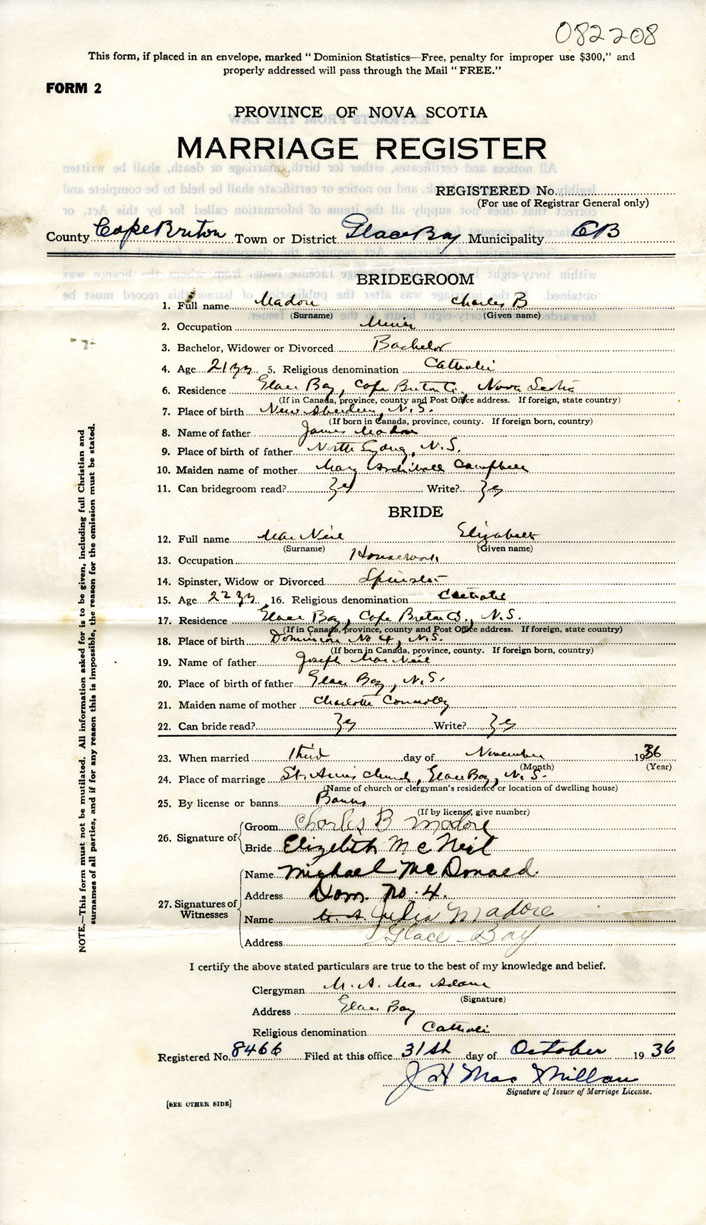 082208
This form, if placed in an envelope, marked "Dominion Statistics—Free, penalty for improper use $300," and
properly addressed will pass through the Mail "FREE."
FORM 2
PROVINCE OF NOVA SCOTIA
MARRIAGE REGISTER
REGISTERED No.
(For use of Registrar General only)
County Cape Breton Town or District Glace Bay Municipality CB
BRIDEGROOM
1. Full name Madore Charles B
(Surname) (Given name)
2. Occupation Miner
3. Bachelor, Widower or Divorced Bachelor
4. Age 21 yrs 5. Religious denomination Catholic
6. Residence Glace Bay, Cape Breton Co, Nova Scotia
(If in Canada, province, county and Post Office address. If foreign, state country)
7. Place of birth New Aberdeen, N.S.
(If born in Canada, province, county. If foreign born, country)
8. Name of father James Madore
9. Place of father North Sydney, N.S.
10. Maiden name of mother Mary Campbell
11. Can bridegroom read? Yes Write? Yes
BRIDE
12. Full name MacNeil Elizabeth
(Surname) (Given name)
13. Occupation Housework
14. Spinster, Widow or Divorced Spinster
15. Age 22 yrs 16. Religious denomination Catholic
17. Residence Glace Bay, Cape Breton Co., N.S.
(If in Canada, province, county and Post Office address. If foreign, state country)
18. Place of birth Dominion No 4, N.S.
(If born in Canada, province, county. If foreign born, country)
19. Name of father Joseph MacNeil
20. Place of birth of father Glace Bay, N.S.
21. Maiden name of mother Charlotte Connolly
22. Can bride read? Yes Write? Yes
23. When married third day of November 1936
(Month) (Year)
24. Place of marriage St. Ann's Church, Glace Bay, N.S.
(Name of church or clergyman's residence or location of dwelling house)
25. By license or banns Banns
(If by license, give number)
26. Signature of Groom Charles B Madore
Bride Elizebth McNeil
27. Signatures of Witnesses
Name Michael McDonald
Address Dom. No. 4.
Name Julia Madore
Address Glace Bay
I certify the above stated particulars are true to the best of my knowledge and belief.
Clergyman M. A. MacAdam
(Signature)
Address Glace Bay
Religious denomination Catholic
Registered No. 8466 Filed at this office 31st day of October 1936
J H MacMillan
Signature of Issuer of Marriage License.
[SEE OTHER SIDE]
NOTE.—This form must not be mutilated. All information asked for is to be given, including full Christian and
surnames of all parties, and if for any reason this is impossible, the reason for the omission must be stated.